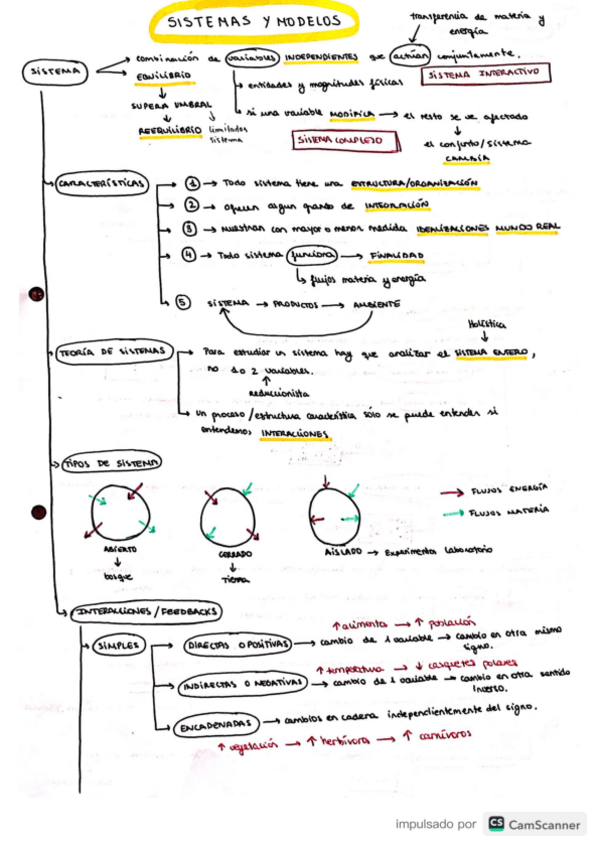 SISTEMAS Y MODELOS
transferencia de materia y
energía
SISTEMA
combinación de variables INDEPENDIENTES que actúan conjuntamente.
EQUILIBRIO
entidades y magnitudes físicas
SISTEMA INTERACTIVO
SUPERA UMBRAL
si una variable MODIFICA → el resto se ve afectado
REEQUILIBRIO
sistema
SISTEMA COMPLEJO
el conjunto/sistema
CAMBIA
CARACTERÍSTICAS
1 → Todo sistema tiene una ESTRUCTURA/ORGANIZACIÓN
2 → ofrecen algun grado de INTEGRACIÓN
3 → Muestran con mayor o menos medida IDEALIZACIONES MUNDO REAL
4 → Todo sistema funciona → FINALIDAD
flujos materia y energía
5 SISTEMA → PRODUCTOS → AMBIENTE
Holística
TEORÍA DE SISTEMAS
Para estudiar un sistema hay que analizar el SISTEMA ENTERO,
no 1 o 2 variables.
reduccionista
Un proceso/estructura característica sólo se puede entender si
entendemos INTERACCIONES
TIPOS DE SISTEMA
→ FLUJOS ENERGÍA
→ FLUJOS MATERIA
ABIERTO
CERRADO
AISLADO → Experimentos Laboratorio
bosque
Tierra
INTERACCIONES / FEEDBACKS
↑ alimento → ↑ población
SIMPLES
DIRECTAS O POSITIVAS → cambio de 1 variable → cambio en otra mismo
signo.
↑ temperatura → ↓ casquetes polares
INDIRECTAS O NEGATIVAS → cambio de 1 variable → cambio en otra sentido
inverso.
ENCADENADAS → cambios en cadena independientemente del signo.
↑ vegetación → ↑ herbívoros → ↑ carnívoros
impulsado por CS CamScanner